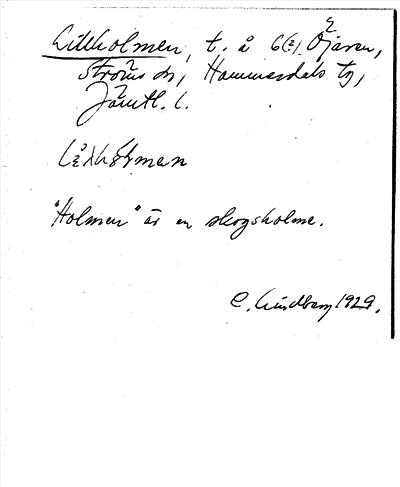 Lillholmen, t. å G(:2). Öjaren,
Ströms sn, Hammerdals tg,
Jämtl. l.
"Holmen" är en skogsholme.
C. Lindberg 1929.